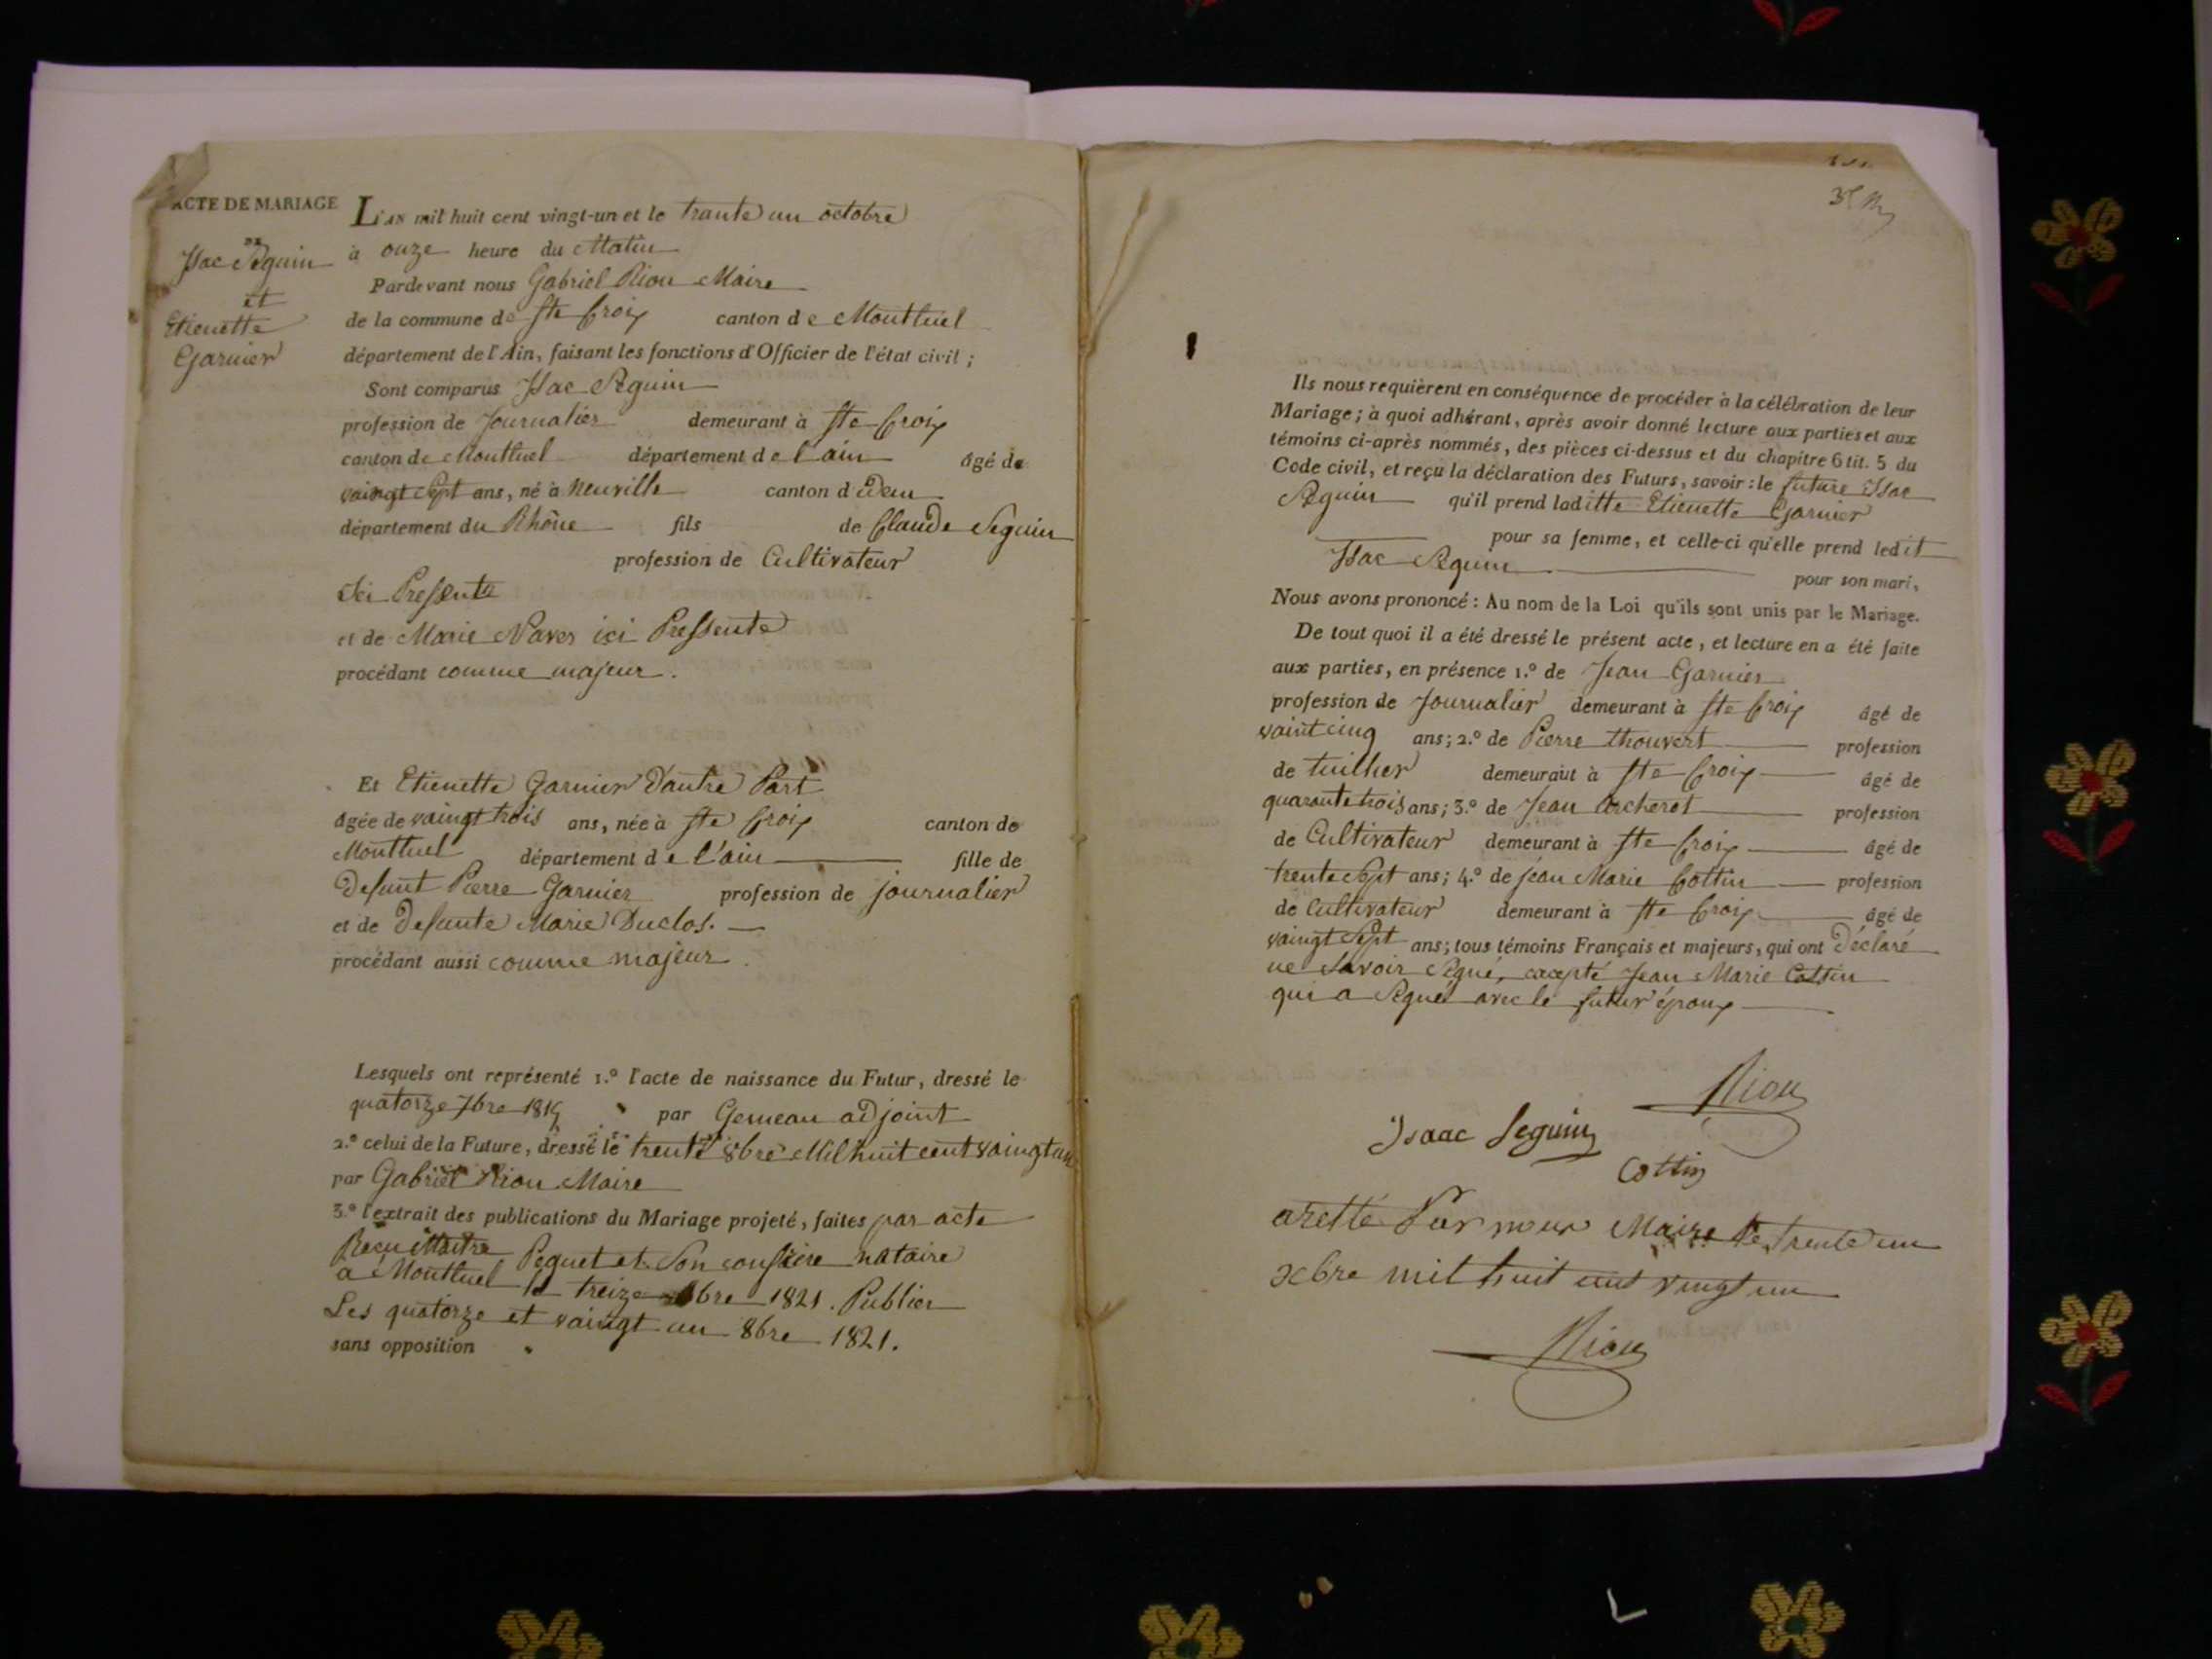 ACTE DE MARIAGE
DE
Isac Séguin
et
Etienette
Garnier
L'AN mil huit cent vingt-un et le trante un octobre
à onze heure du Matin
Pardevant nous Gabriel Riou Maire
de la commune de Ste Croix canton de Montluel
département de l'Ain, faisant les fonctions d'Officier de l'état civil ;
Sont comparus Isac Séguin
profession de Journalier demeurant à Ste Croix
canton de Montluel département de l'ain âgé de
vaingt Sept ans, né à Neuville canton d'idem
département du Rhône fils de Claude Seguin
profession de Cultivateur
Ici Pressente
et de Marie Naver ici Pressente
procédant comme majeur.
Et Etienette Garnier D'autre Part
âgée de vaingt trois ans, née à Ste Croix canton de
Montluel département de l'ain fille de
Defunt Pierre Garnier profession de journalier
et de Defunte Marie Duclos.
procédant aussi comme majeur.
Lesquels ont représenté 1.° l'acte de naissance du Futur, dressé le
quatorze 7bre par Gemeau adjoint
2.° celui de la Future, dressé le trente 8bre Mil huit cent vaingt un
par Gabriel Riou Maire
3.° l'extrait des publications du Mariage projeté, faites par acte
Reçu Maitre Peguet et Son nataire
a Montluel le treize 8bre 1821. Publier
Les quatorze et vaingt un 8bre 1821.
sans opposition
Ils nous requièrent en conséquence de procéder à la célébration de leur
Mariage ; à quoi adhérant, après avoir donné lecture aux parties et aux
témoins ci-après nommés, des pièces ci-dessus et du chapitre 6 tit. 5 du
Code civil, et reçu la déclaration des Futurs, savoir : le future Isac
Séguin qu'il prend laditte Etienette Garnier
pour sa femme, et celle-ci qu'elle prend ledit
Isac Séguin pour son mari,
Nous avons prononcé : Au nom de la Loi qu'ils sont unis par le Mariage.
De tout quoi il a été dressé le présent acte, et lecture en a été faite
aux parties, en présence 1.° de Jean Garnier
profession de Journalier demeurant à Ste Croix âgé de
vaint cinq ans ; 2.° de Pierre thouvert profession
de tuilher demeurant à Ste Croix âgé de
quarante trois ans ; 3.° de Jean Archerot profession
de Cultivateur demeurant à Ste Croix âgé de
trente Sept ans ; 4.° de jean Marie Cottin profession
de Cultivateur demeurant à Ste Croix âgé de
vaingt Sept ans ; tous témoins Français et majeurs, qui ont Déclaré
ne Savoir Signé, excepté Jean Marie Cottin
qui a Signé avec le futur époux
Riou
Isaac Seguin
Cottin
aretté Par nous Maire le trente un
8bre mil huit cent vingt un
Riou